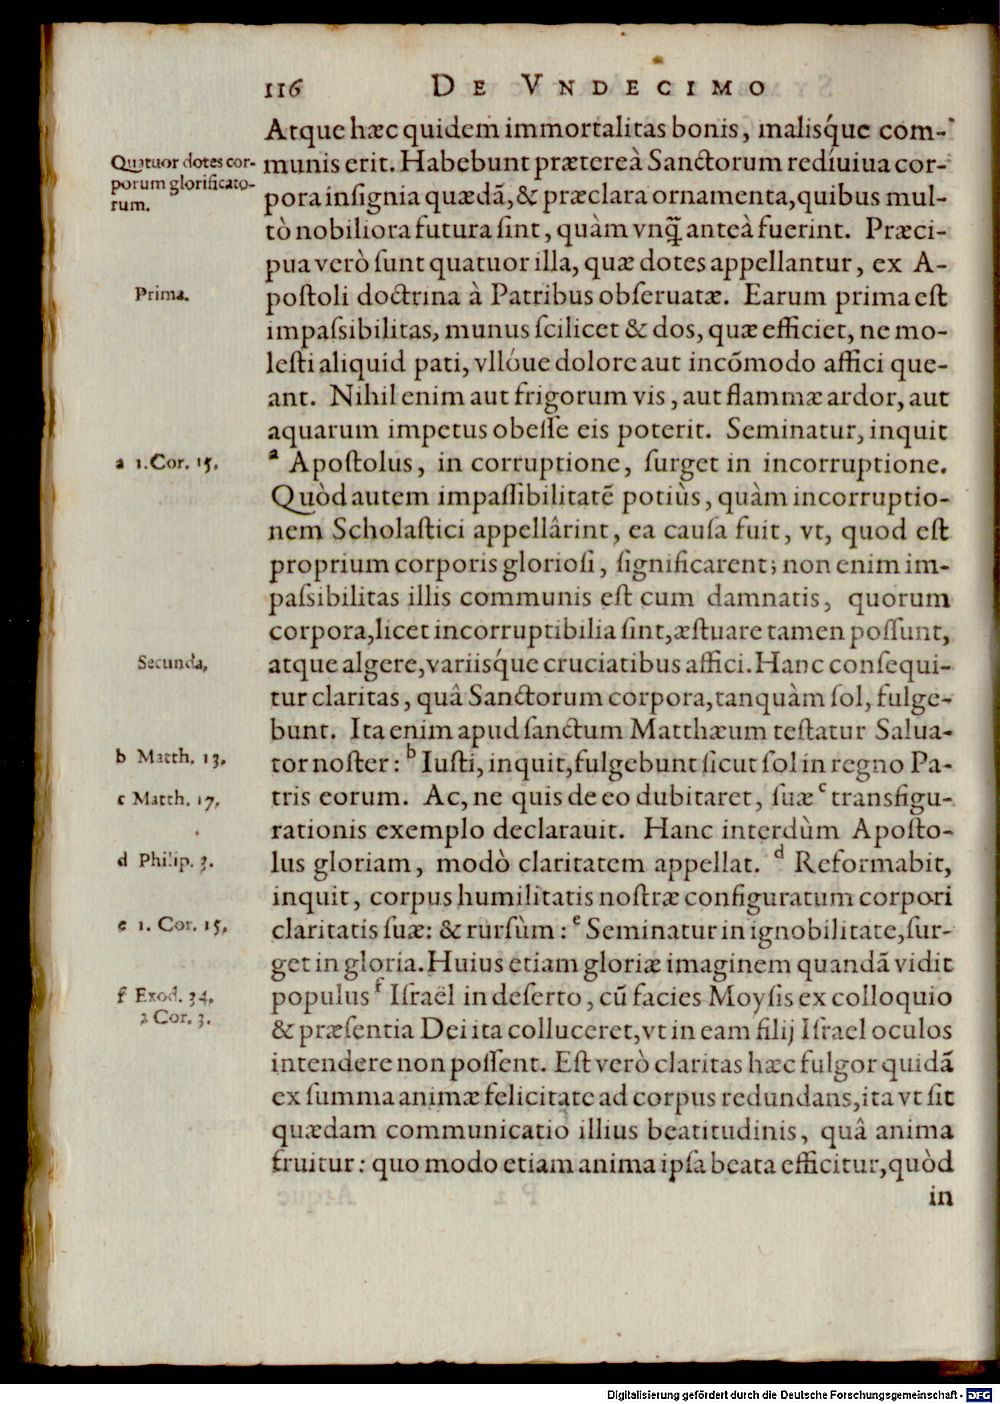 116 DE VNDECIMO
Atque hæc quidem immortalitas bonis, malisq́ue com-
Quatuor dotes cor-
porum glorificato-
rum.
munis erit. Habebunt prætereà Sanctorum rediuiua cor-
pora insignia quædã, & præclara ornamenta, quibus mul-
tò nobiliora futura sint, quàm vnq̃ anteà fuerint. Præci-
pua verò sunt quatuor illa, quæ dotes appellantur, ex A-
Prima.
postoli doctrina à Patribus obseruatæ. Earum prima est
impaſsibilitas, munus scilicet & dos, quæ efficiet, ne mo-
lesti aliquid pati, vllóue dolore aut incõmodo affici que-
ant. Nihil enim aut frigorum vis, aut flammæ ardor, aut
aquarum impetus obesse eis poterit. Seminatur, inquit
a 1. Cor. 15.
a Apostolus, in corruptione, surget in incorruptione.
Quòd autem impassibilitatẽ potiùs, quàm incorruptio-
nem Scholastici appellârint, ea causa fuit, vt, quod est
proprium corporis gloriosi, significarent; non enim im-
paſsibilitas illis communis est cum damnatis, quorum
corpora, licet incorruptibilia sint, æstuare tamen possunt,
Secunda,
atque algere, variisq́ue cruciatibus affici. Hanc consequi-
tur claritas, quâ Sanctorum corpora, tanquàm sol, fulge-
bunt. Ita enim apud sanctum Matthæum testatur Salua-
b Matth. 13.
tor noster: b Iusti, inquit, fulgebunt sicut sol in regno Pa-
c Matth. 17.
tris eorum. Ac, ne quis de eo dubitaret, suæ c transfigu-
rationis exemplo declarauit. Hanc interdùm Aposto-
d Philip. 3.
lus gloriam, modò claritatem appellat. d Reformabit,
inquit, corpus humilitatis nostræ configuratum corpori
e 1. Cor. 15,
claritatis suæ: & rursùm: e Seminatur in ignobilitate, sur-
get in gloria. Huius etiam gloriæ imaginem quandã vidit
f Exod. 34.
2 Cor. 3.
populus f Israël in deserto, cũ facies Moysis ex colloquio
& præsentia Dei ita colluceret, vt in eam filij Israel oculos
intendere non possent. Est verò claritas hæc fulgor quidã
ex summa animæ felicitate ad corpus redundans, ita vt sit
quædam communicatio illius beatitudinis, quâ anima
fruitur: quo modo etiam anima ipsa beata efficitur, quòd
in
Digitalisierung gefördert durch die Deutsche Forschungsgemeinschaft - DFG